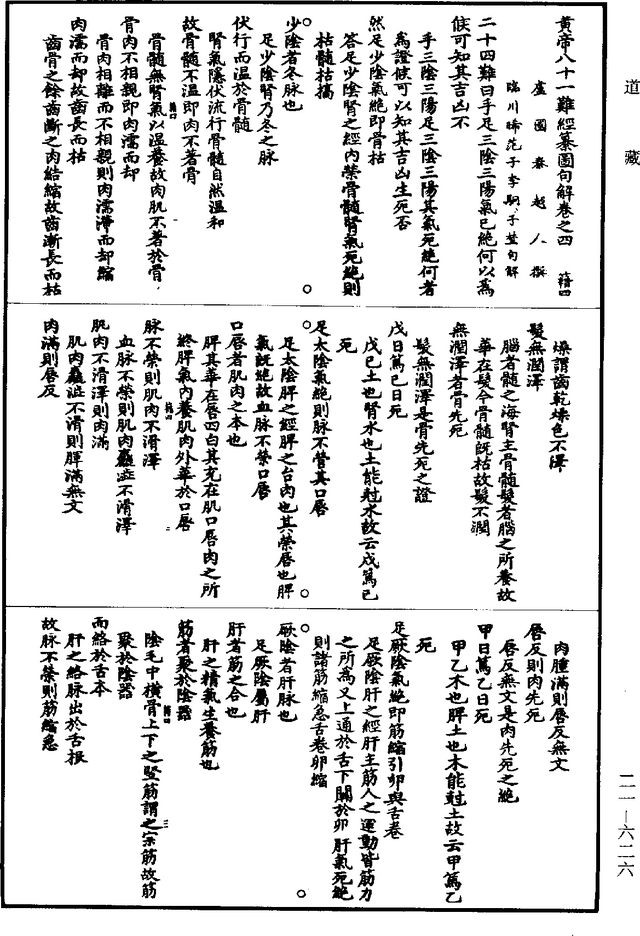 道藏
黃帝八十一難經纂圖句解卷之四 籍四
盧國秦越人撰
臨川晞范子李駉子埜句解
二十四難曰手足三陰三陽氣已絕何以為
候可知其吉凶不
手三陰三陽足三陰三陽其氣死絕何者
為證候可以知其吉凶生死否
然足少陰氣絕即骨枯
答足少陰腎之經內榮骨髓腎氣死絕則
枯髓枯搞
少陰者冬脉也
足少陰腎乃冬之脉
伏行而温於骨髓
腎氣隱伏流行骨髓自然溫和
故骨髓不溫即肉不著骨
骨髓無腎氣以温養故肉肌不著於骨
骨肉不相親即肉濡而却
骨肉相離而不相親則肉濡滯而却縮
肉濡而却故齒長而枯
齒骨之餘齒齗之肉結縮故齒漸長而枯
燥謂齒乾燥色不澤
髮無潤澤
腦者髓之海腎主骨髓髮者腦之所養故
華在髮今骨髓既枯故髮不潤
無潤澤者骨先死
髮無潤澤是骨先死之證
戊日篤己日死
戊己土也腎水也土能尅水故云戊篤己
死
足太陰氣絕則脉不營其口唇
足太陰脾之經脾之合肉也其榮唇也脾
氣既絕故血脉不榮口唇
口唇者肌肉之本也
脾其華在唇四白其充在肌口唇肉之所
終脾氣內養肌肉外華於口唇
脉不榮則肌肉不滑澤
血脉不榮則肌肉麤澁不滑澤
肌肉不滑澤則肉滿
肌肉麤澁不滑則腫滿無文
肉滿則唇反
肉腫滿則唇反無文
唇反則肉先死
唇反無文是肉先死之絕
甲日篤乙日死
甲乙木也脾土也木能尅土故云甲篤乙
死
足厥陰氣絕即筋縮引卵與舌卷
足厥陰肝之經肝主筋人之運動皆筋力
之所為又上通於舌下關於卵肝氣死絕
則諸筋縮急舌卷卵縮
厥陰者肝脉也
足厥陰屬肝
肝者筋之合也
肝之精氣生養筋也
筋者聚於陰器
陰毛中橫骨上下之竪筋謂之宗筋故筋
聚於陰器
而絡於舌本
肝之絡脉出於舌根
故脉不榮則筋縮急
二一—六二六